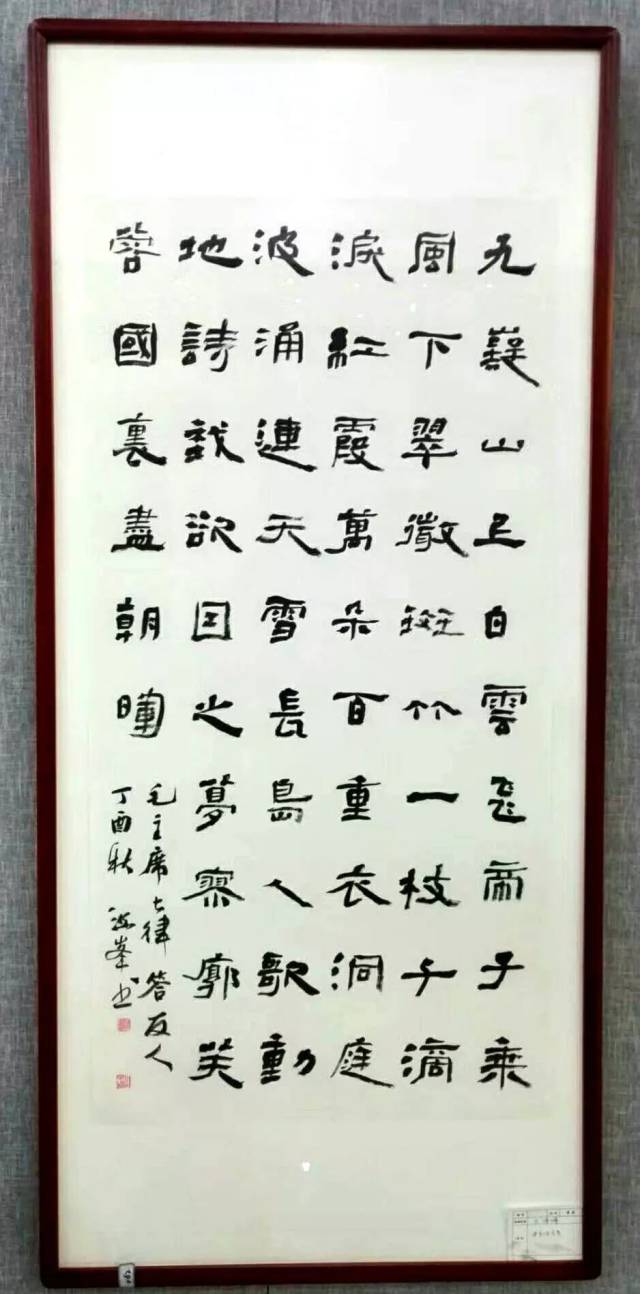 九嶷山上白雲飛帝子乘
風下翠微斑竹一枝千滴
淚紅霞萬朵百重衣洞庭
波涌連天雪長島人歌動
地詩我欲因之夢寥廓芙
蓉國裏盡朝暉
毛主席七律答友人
丁酉秋 峯书